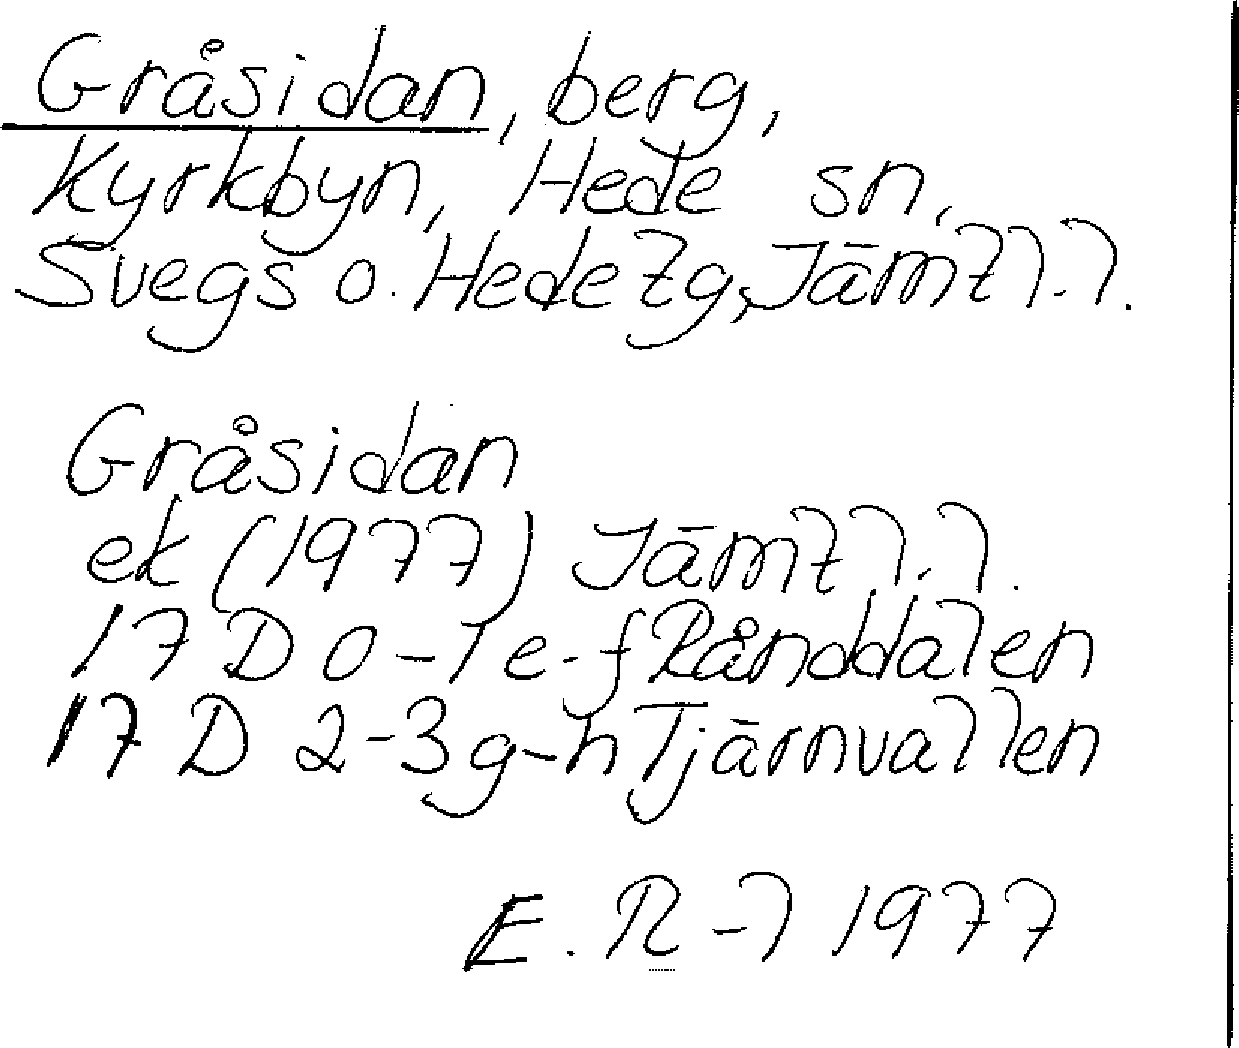 Gråsidan, berg,
Kyrkbyn, Hede sn,
Svegs o. Hede tg, Jämtl. l.
Gråsidan
ek (1977) Jämtl. l.
17 D 0-1 e-f Rånddalen
17 D 2-3 g-h Tjärnvallen
E. R-l 1977